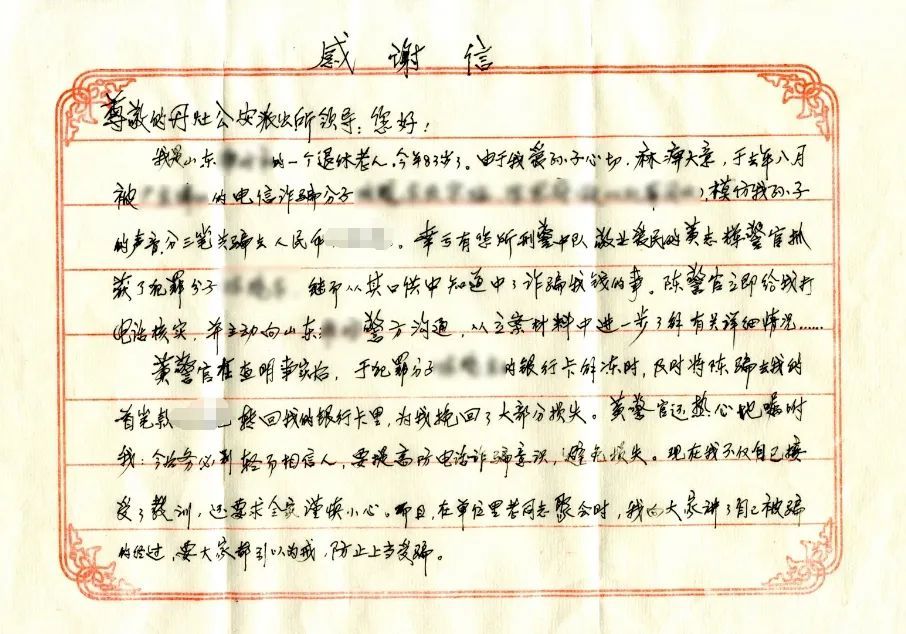 感谢信
尊敬的丹灶公安派出所领导：您好！
我是山东的一个退休老人，今年83岁了。由于我爱孙子心切，麻痹大意，于去年八月
被的电信诈骗分子，模仿我孙子
的声音，分三笔共骗去人民币。幸亏有您所刑警中队敬业爱民的黄志辉警官抓
获了犯罪分子继而从其口供中知道中了诈骗我钱的事。陈警官立即给我打
电话核实，并主动向山东警方沟通，从立案材料中进一步了解有关详细情况……
黄警官在查明事实后，于犯罪分子的银行卡解冻时，及时将陈骗去我的
首笔款转回我的银行卡里，为我挽回了大部分损失。黄警官还热心地嘱咐
我：今后务必别轻而相信人，要提高防电话诈骗意识，避免损失。现在我不仅自己接
受了教训，还要求全家谨慎小心。而且，在单位里老同志聚会时，我向大家讲了自己被骗
的经过，要大家都引以为戒，防止上当受骗。